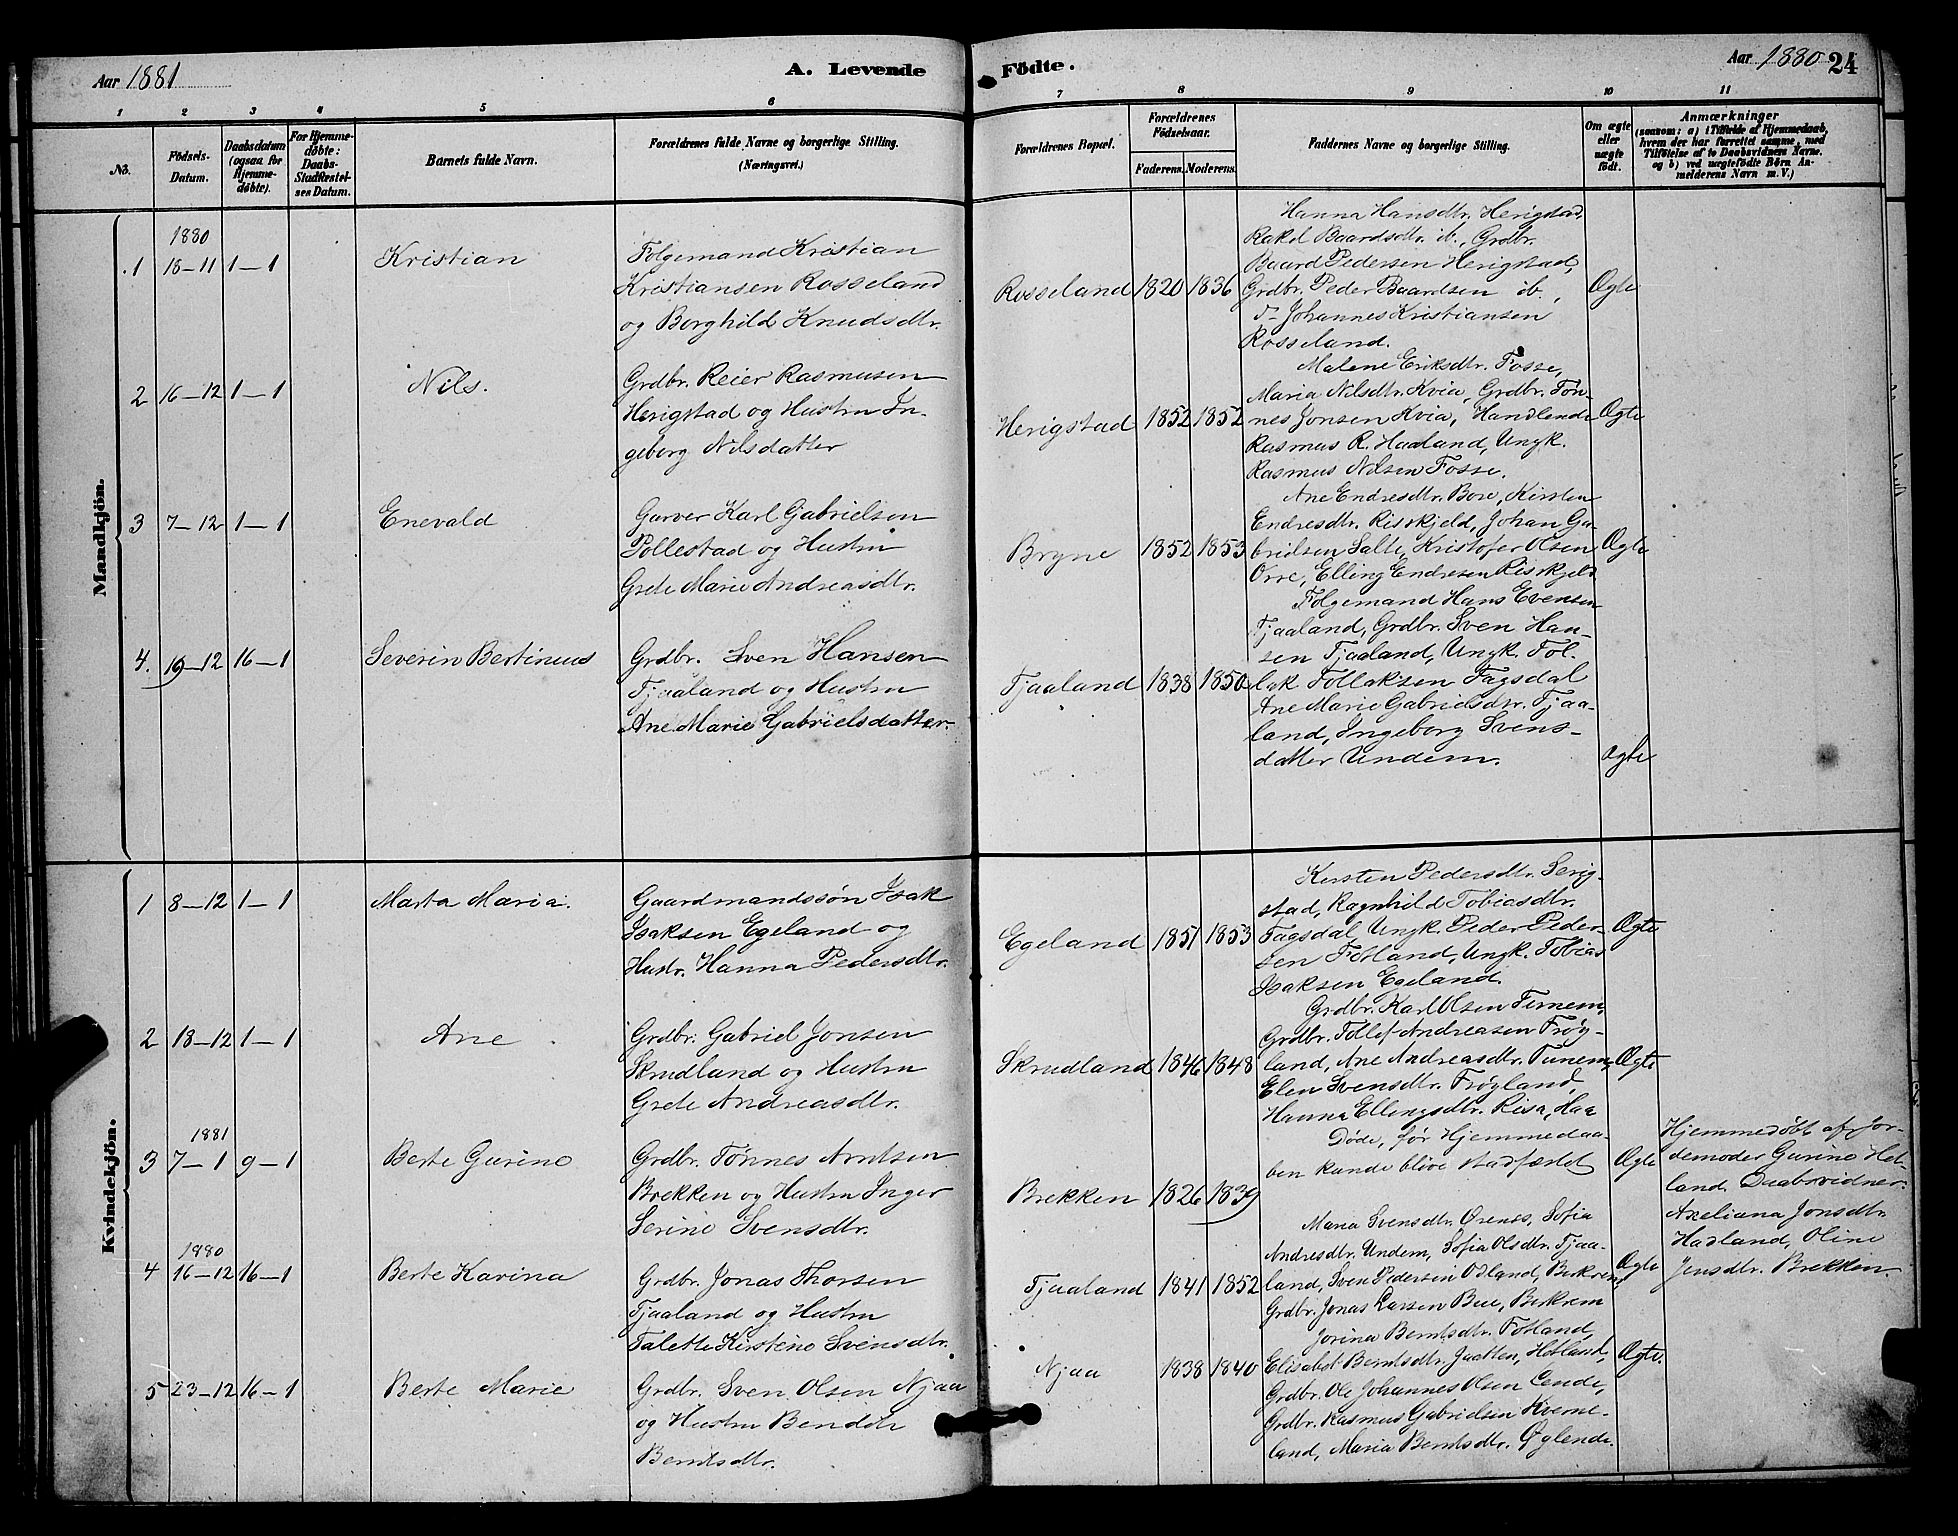 Aar 1881
A. Levende
Fødte.
Aar 1880
24
1 2 3 4 5 6 7 8 9 10 11
No.
Fødsels-
Datum.
Daabsdatum
(ogsaa for
Hjemme-
døbte).
For Hjemme-
døbte:
Daabs-
Stadfæstel-
ses Datum.
Barnets fulde Navn.
Forældrenes fulde Navne og borgerlige Stilling.
(Næringsvei.)
Forældrenes Bopæl.
Forældrenes
Fødselsaar.
Faderens. Moderens.
Faddernes Navne og borgerlige Stilling.
Om ægte
eller
uægte
født.
Anmærkninger
(saasom: a) i Tilfælde af Hjemmedaab,
hvem der har forrettet samme, med
Tilføielse af to Daabsvidners Navne.
og b) ved uægtefødte Børn An-
melderens Navn m. V.)
Mandkjön.
1880
1 18-11 1-1
Kristian
Folgemand Kristian
Kristiansen Rosseland
og Borghild Knudsdtr.
Rosseland 1820 1836
Hanna Hansdtr. Herigstad,
Rakel Baardsdtr. ib., Grdbr.
Baard Pedersen Herigstad,
Grdbr. Peder Baardsen ib.,
Johannes Kristiansen
Rosseland.
Ægte
2 16-12 1-1
Nils.
Grdbr. Reier Rasmusen
Herigstad og Hustru In-
geborg Nilsdatter
Herigstad 1852 1852
Malene Eriksdtr. Fosse,
Maria Nilsdtr. Kvia, Grdbr. Tøn-
nes Jonsen Kvia, Handlende
Rasmus R. Haaland, Ungk.
Rasmus Nilsen Fosse.
Ægte
3 7-12 1-1
Enevald
Garver Karl Gabrielsen
Pollestad og Hustru
Grete Marie Andreasdtr.
Bryne 1852 1853
Ane Endresdtr. Bore, Kirsten
Endresdtr. Riskjeld, Johan Ga-
brielsen Salte, Kristofer Olsen
Orre, Elling Endresen Riskjeld
Ægte
4. 19-12 16-1
Severin Bertinius
Grdbr. Sven Hansen
Tjaaland og Hustru
Ane Marie Gabrielsdatter
Tjaaland 1838 1850
Folgemand Hans Evensen
Tjaaland, Grdbr. Sven Han-
sen Tjaaland, Ungk. Tol-
lak Tollaksen Fagsdal
Ane Marie Gabrielsdtr. Tjaa-
land, Ingeborg Svens-
datter Undem.
Ægte
Kvindekjön.
1 8-12 1-1
Marta Maria.
Gaardmandssøn Isak
Isaksen Egeland og
Hustr. Hanna Pedersdtr.
Egeland 1851 1853
Kersten Pedersdtr. Serig-
stad, Ragnhild Tobiasdtr.
Fagsdal, Ungk. Peder Peder-
sen Fotland, Ungk. Tobias
Isaksen Egeland.
Ægte
2 18-12 1-1
Ane
Grdbr. Gabriel Jonsen
Skrudland og Hustru
Grete Andreasdtr.
Skrudland 1846 1848
Grdbr. Karl Olsen Tunem,
Grdbr. Tollef Andreasen Frøy-
land, Ane Andreasdtr. Tunem,
Elen Svensdtr. Frøyland,
Hanna Ellingsdtr. Risa, Haa
Ægte
1881
3 7-1 9-1
Berte Gurine
Grdbr. Tønnes Arntsen
Brekken og Hustru Inger
Serine Svensdtr.
Brekken 1826 1839
Døde, før Hjemmedaa-
ben kunde blive stadfæstet
Ægte
Hjemmedøbt af Jor-
demoder Gurine Het-
land. Daabsvidner:
Axeliana Jonsdtr.
Hadland, Oline
Jensdtr. Brekken.
1880
4 16-12 16-1
Berte Karina
Grdbr. Jonas Thorsen
Tjaaland og Hustru
Talette Kirstene Svensdtr.
Tjaaland 1841 1852
Maria Svensdtr. Ørenes, Sofia
Andresdtr. Undem, Sofia Olsdtr. Tjaa-
land, Sven Pedersen Odland, Birkrem,
Grdbr. Jonas Larsen Bue, Birkrem
Ægte
5 23-12 16-1
Berte Marie
Grdbr. Sven Olsen Njaa
og Hustru Bendete
Berntsdtr.
Njaa 1838 1840
Jorina Berntsdtr. Fotland,
Elisabet Berntsdtr. Jaatten, Hetland,
Grdbr. Ole Johannes Olsen Lende,
Grdbr. Rasmus Gabrielsen Kverne-
land, Maria Berntsdtr. Øglende.
Ægte.